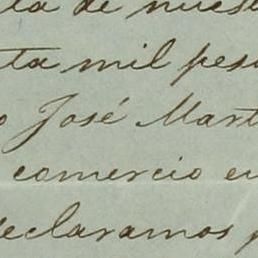 ta de nuest
ta mil pes
o José Mart
comercio en
declaramos p